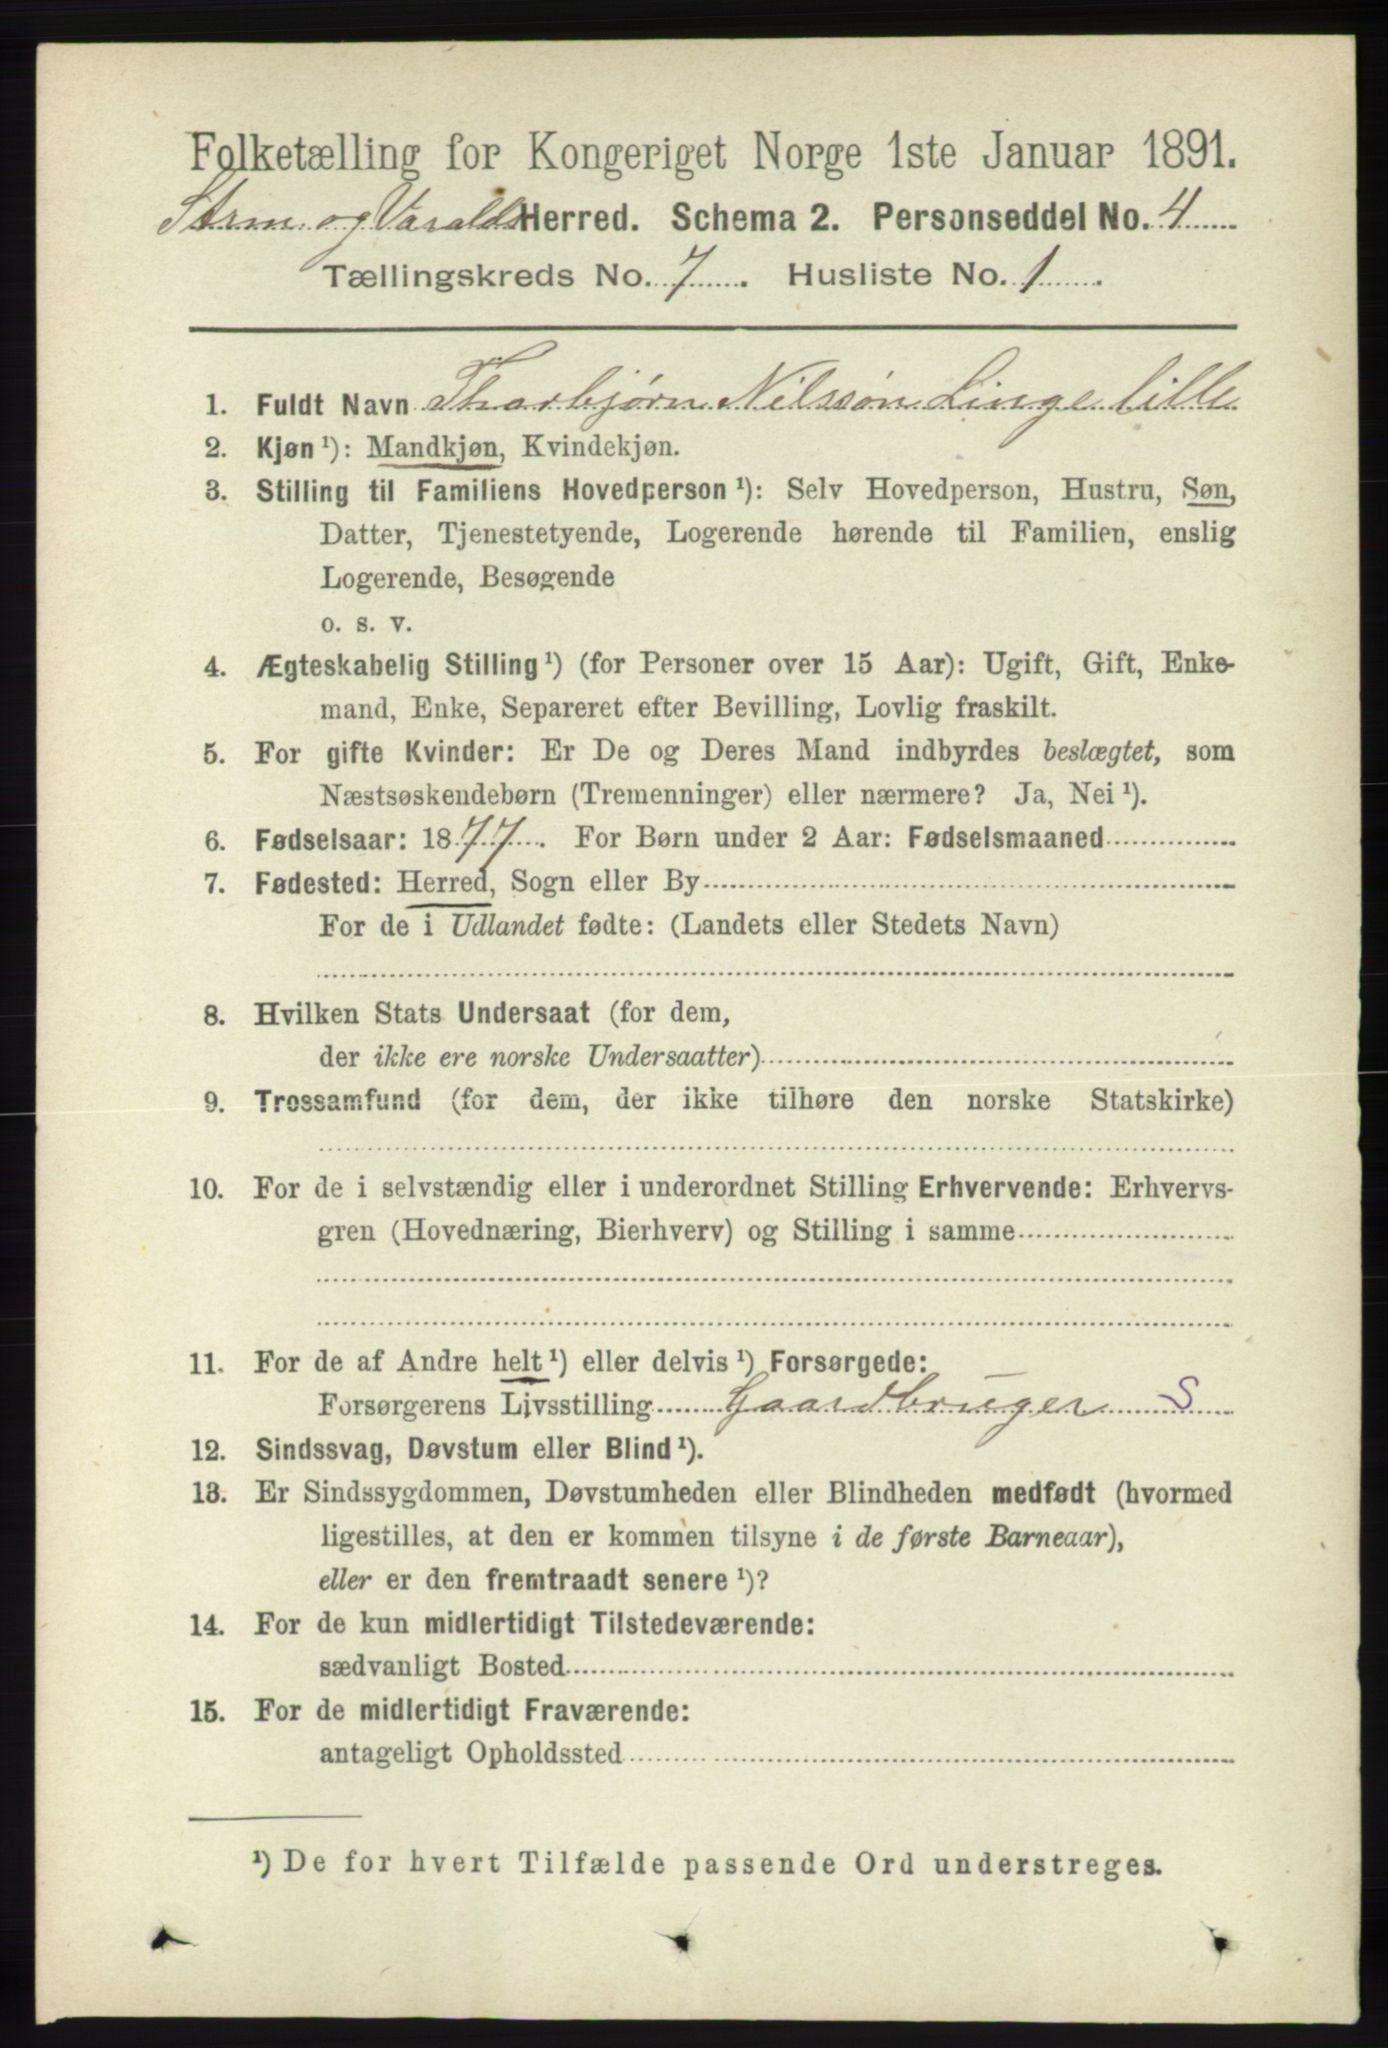 Folketælling for Kongeriget Norge 1ste Januar 1891.
og Varalds Herred. Schema 2. Personseddel No. 4
Tællingskreds No. 7. Husliste No. 1.
1. Fuldt Navn Thorbjørn Nilssøn Linge lille
2. Kjøn ¹): Mandkjøn, Kvindekjøn.
3. Stilling til Familiens Hovedperson ¹): Selv Hovedperson, Hustru, Søn,
Datter, Tjenestetyende, Logerende hørende til Familien, enslig
Logerende, Besøgende
o. s. v.
4. Ægteskabelig Stilling ¹) (for Personer over 15 Aar): Ugift, Gift, Enke-
mand, Enke, Separeret efter Bevilling, Lovlig fraskilt.
5. For gifte Kvinder: Er De og Deres Mand indbyrdes beslægtet, som
Næstsøskendebørn (Tremenninger) eller nærmere? Ja, Nei ¹).
6. Fødselsaar: 1877. For Børn under 2 Aar: Fødselsmaaned
7. Fødested: Herred, Sogn eller By
For de i Udlandet fødte: (Landets eller Stedets Navn)
8. Hvilken Stats Undersaat (for dem,
der ikke ere norske Undersaatter)
9. Trossamfund (for dem, der ikke tilhøre den norske Statskirke)
10. For de i selvstændig eller i underordnet Stilling Erhvervende: Erhvervs-
gren (Hovednæring, Bierhverv) og Stilling i samme
11. For de af Andre helt ¹) eller delvis ¹) Forsørgede:
Forsørgerens Livsstilling Gaardbruger S
12. Sindssvag, Døvstum eller Blind ¹).
13. Er Sindssygdommen, Døvstumheden eller Blindheden medfødt (hvormed
ligestilles, at den er kommen tilsyne i de første Barneaar),
eller er den fremtraadt senere ¹)?
14. For de kun midlertidigt Tilstedeværende:
sædvanligt Bosted
15. For de midlertidigt Fraværende:
antageligt Opholdssted
¹) De for hvert Tilfælde passende Ord understreges.